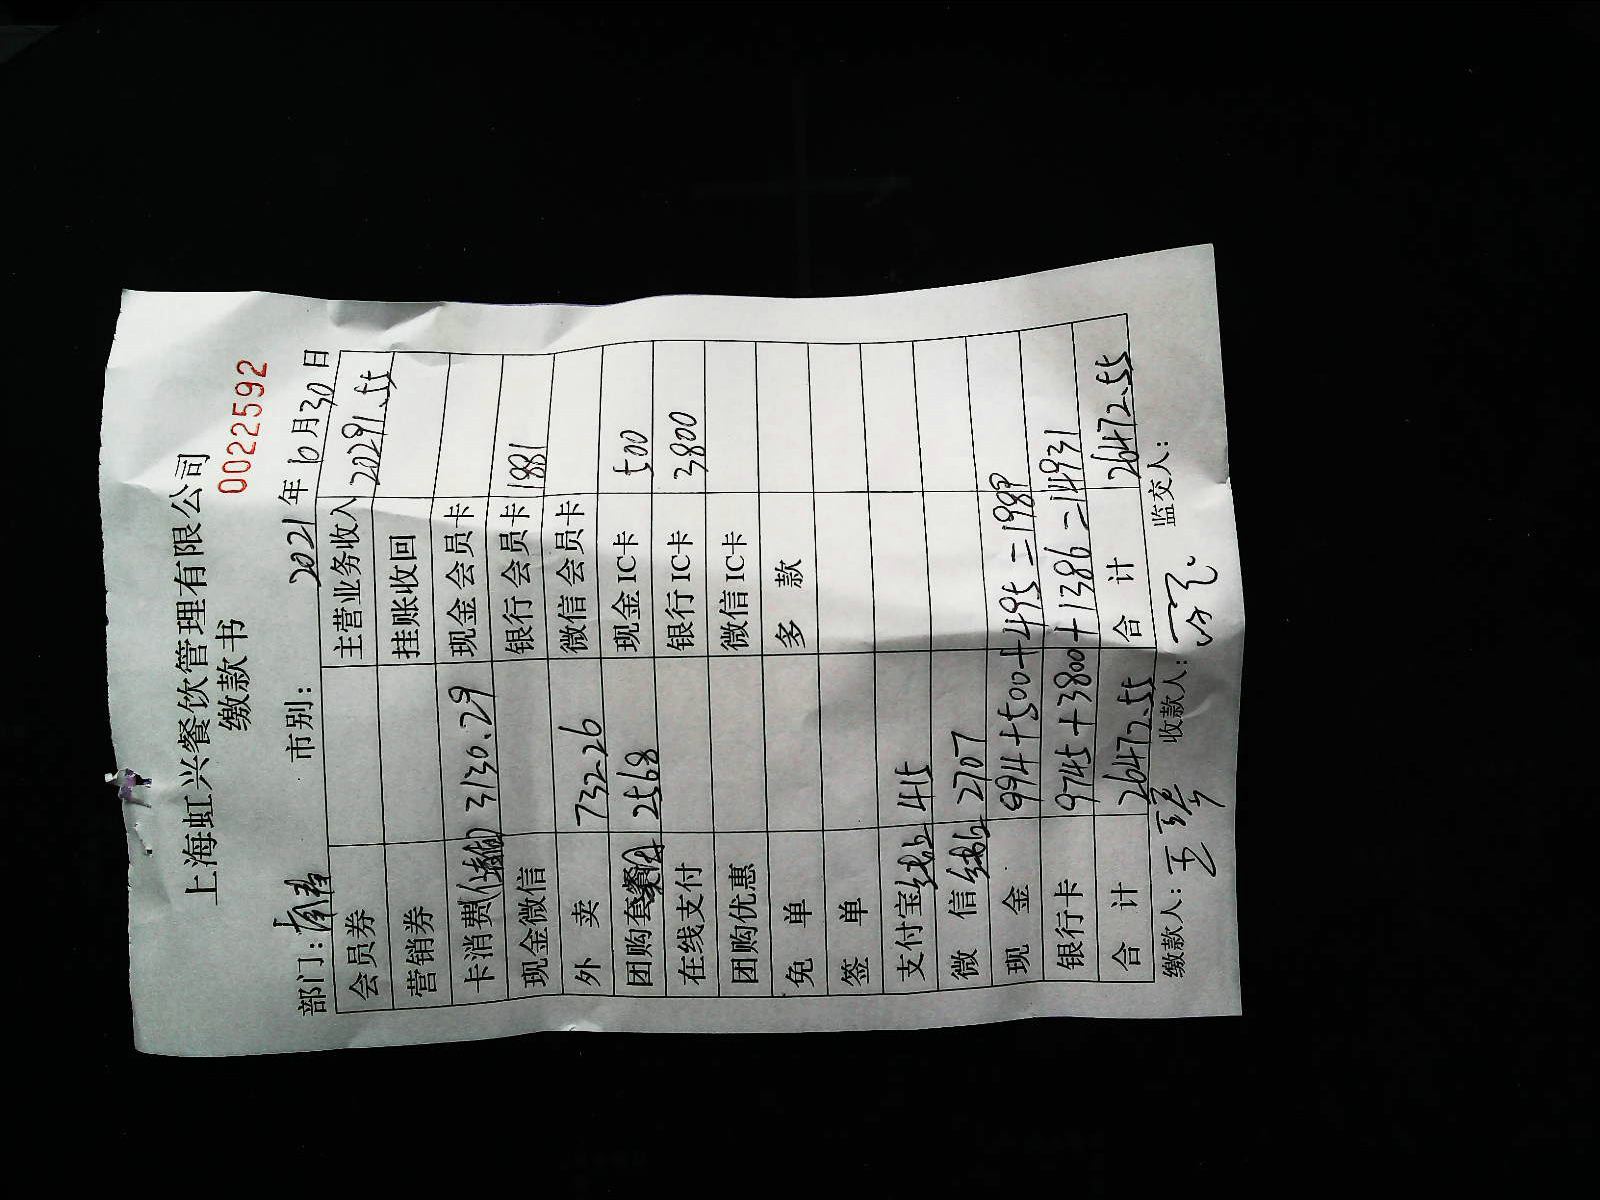 上海虹兴餐饮管理有限公司
缴款书
0022592
部门: 市别: 2021年6月30日
会员券 主营业务收入 20291.55
营销券 挂账收回
卡消费 3130.29 现金会员卡
现金微信 银行会员卡 1881
外 卖 732.26 微信会员卡
团购套餐 2568 现金IC卡 500
在线支付 银行IC卡 3800
团购优惠 微信IC卡
免 单 多 款
签 单
支付宝线上 415
微 信线上 2707
现 金 994+500+495=1989
银行卡 9745+3800+1386=14931
合 计 26472.55 合 计 26472.55
缴款人: 王 收款人: 监交人: